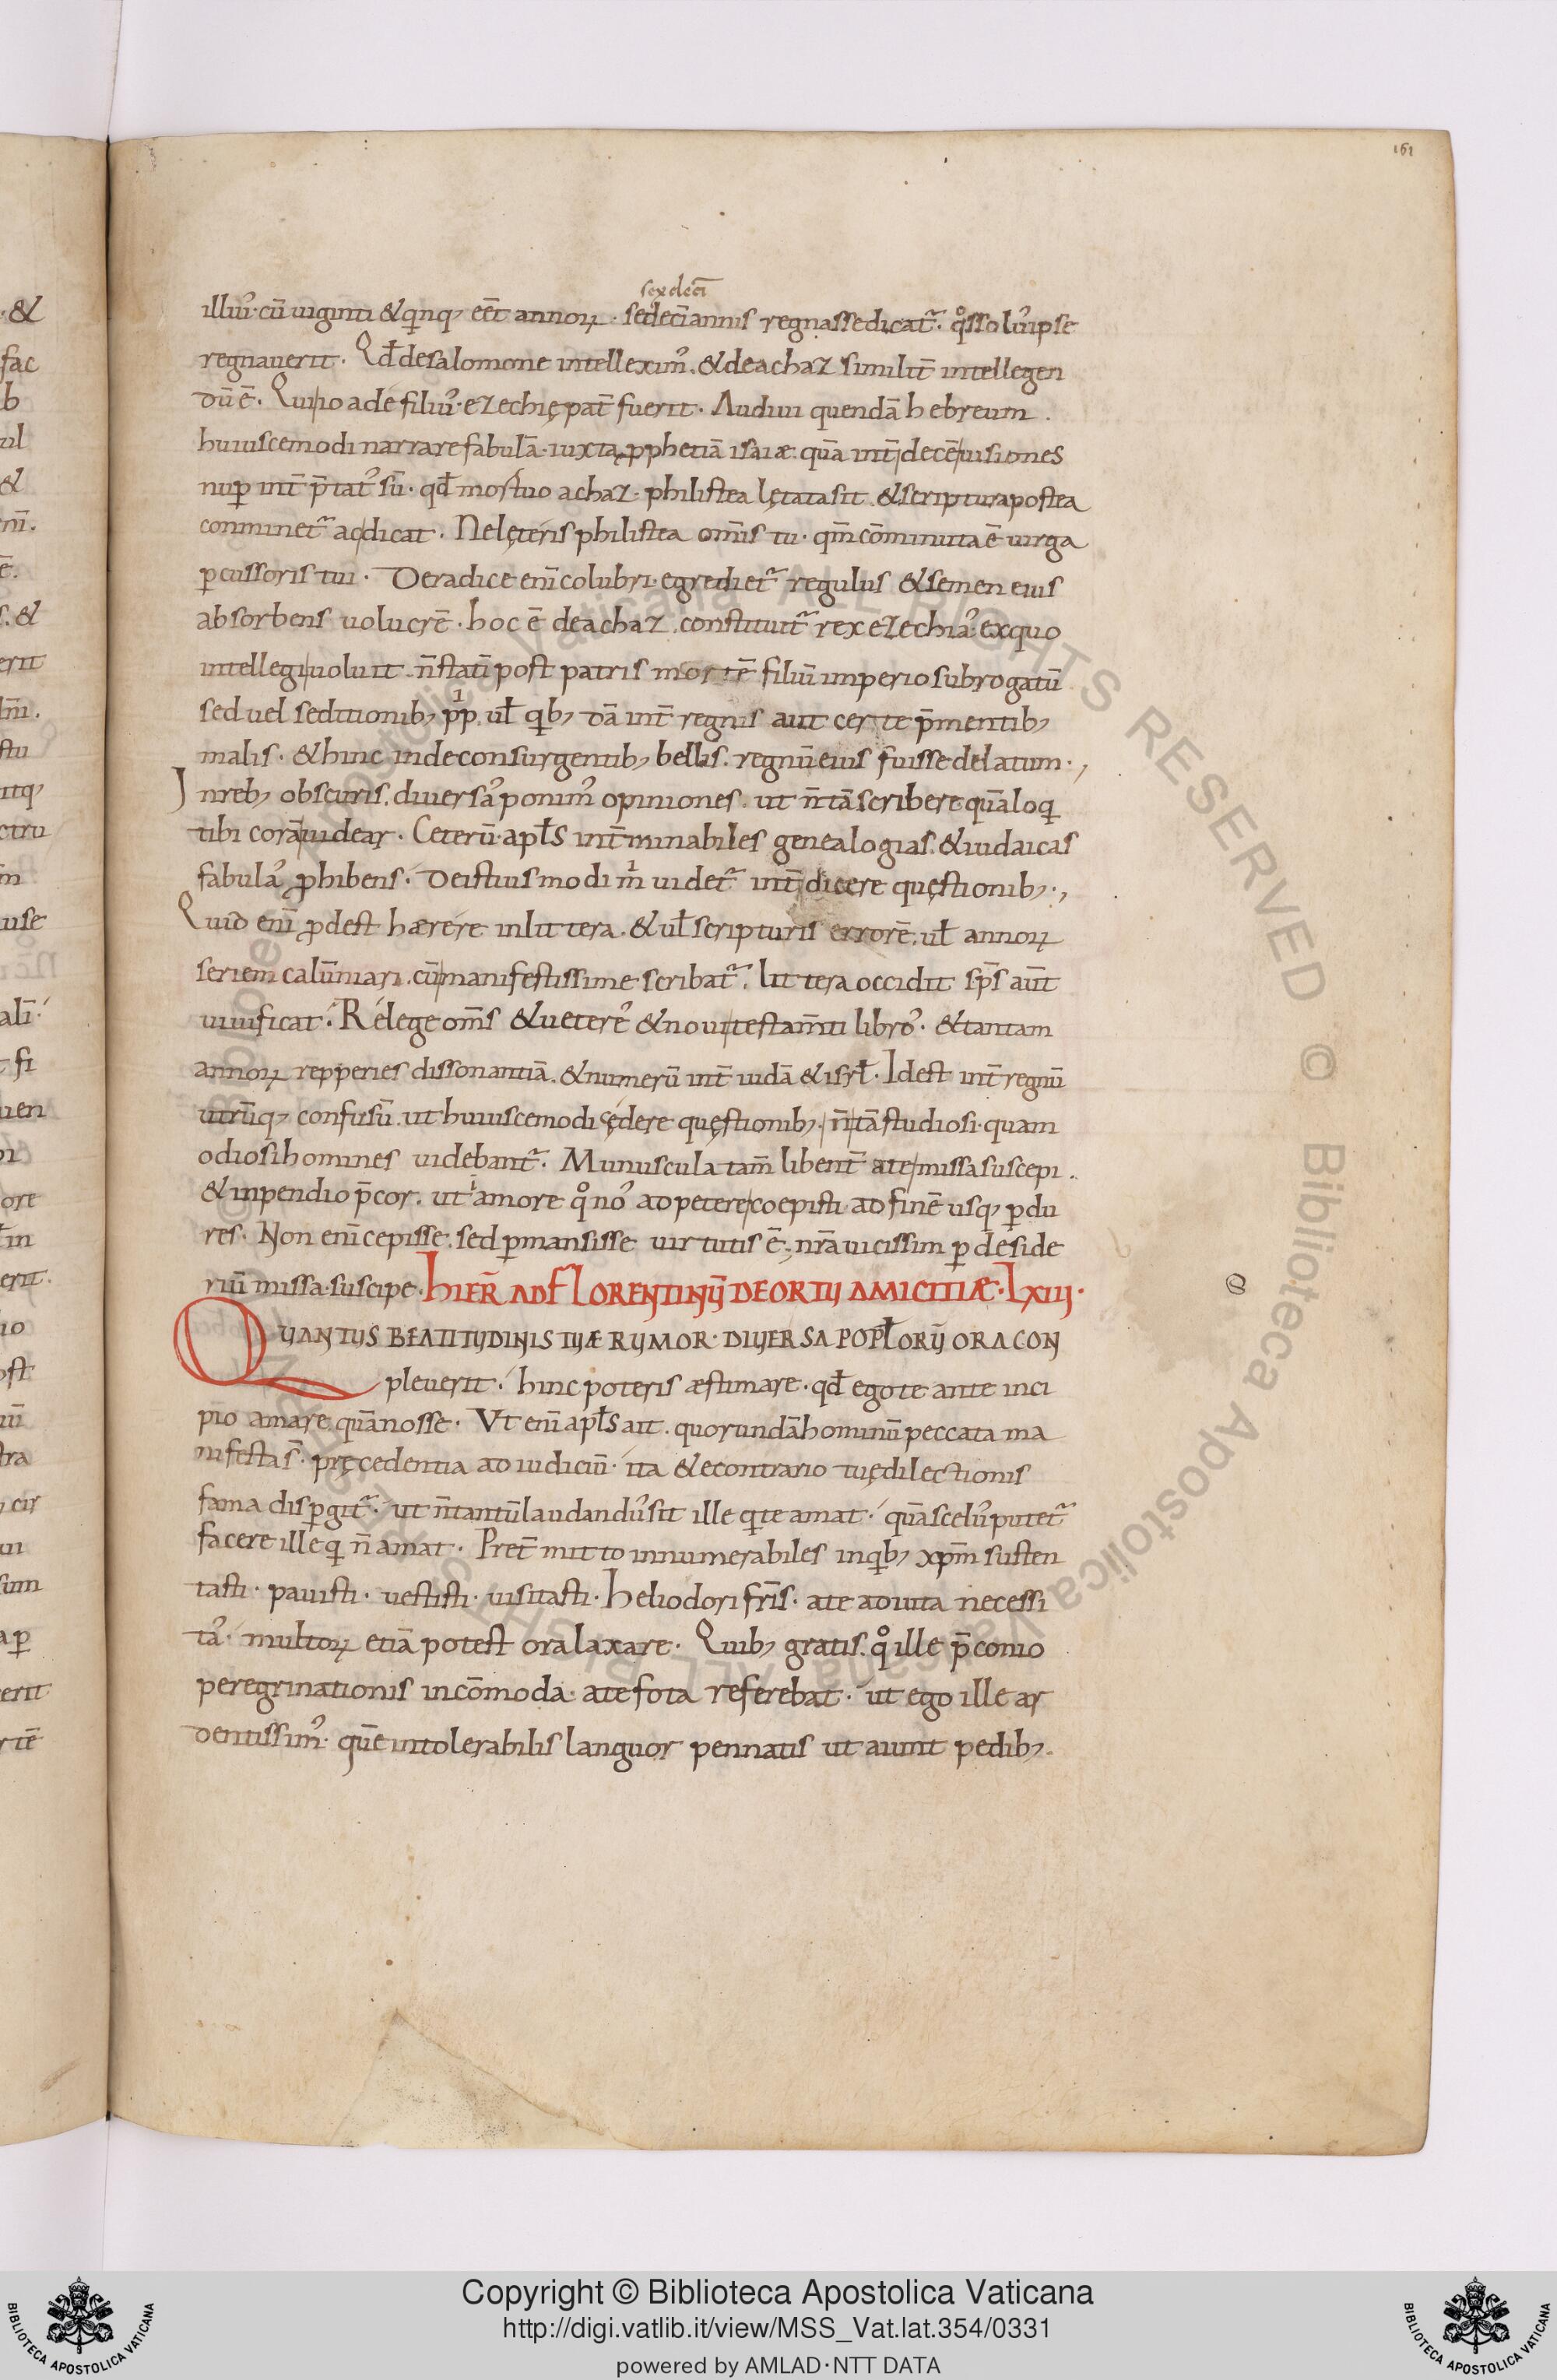 161
sexdecī
illiuˀ· cū uiginti &qͥnq; eēt annoꝝ · sedecī annis regnasse dicat᷑. qͦs soluˀ ipse
regnauerit. Qđ de salomone intelleximˀ. & de achaz similit̄ intellegen
dū ē. Qui ioade filiuˀ· ezechię pat̄ fuerit. Audiui quendā hebreum.
huiuscemodi narrare fabulā· iuxta ꝓphetiā isaiæ. quā int̄ decē uisiones
nup̄ int̄p̄tatˀ sū. qđ mortuo achaz· philistea lętata sit. & scriptura postea
conminet᷑ ac dicat. Ne lęteris philistea om̄is tu. qm̄ cōminuta ē uirga
p̱cussoris tui. De radice enī colubri· egrediet᷑ regulus & semen eius
absorbens uolucrē. hoc ē de achaz constituit᷑ rex ezechiaˀ· ex quo
intellegi uoluit n̄ statī post patris mortē filiū imperio subrogatū
sed uel seditionib; pͥp. ul̄ qͥb; dā int̄regnis aut certe p̄mentib;
malis. & hinc inde consurgentib; bellis. regnū eius fuisse delatum.,
In reb; obscuris. diuersaˀ ponimˀ opiniones. ut n̄ tā scribere quā loqͥ
tibi corā uidear. Ceterū· apl̄s int̄minabiles genealogias. & iudaicas
fabulaˀ ꝓhibens. De istiusmodi mͥ uidet᷑ int̄dicere quęstionib;.,
Quid enī ꝓdest hærere in littera. & ul̄ scripturis errorē. ul̄ annoꝝ
seriem calūniari. cū manifestissime scribat᷑. littera occidit sp̄s aūt
uiuificat. Relege om̄s & uetereˀ & noui testam̄ti libroˀ. & tantam
annoꝝ repperies dissonantiā. & numerū int̄ iudā & isrl̄. Idest int̄ regnū
utrūq; confusū. ut huiuscemodi cędere quęstionib;. n̄ tā studiosi· quam
odiosi homines uidebant᷑. Munuscula tam̄ libent̄ a te missa suscepi.
& inpendio p̄cor. ut amore qͦ noˀ adpetere coepisti ad finē usq; p̱du
res. Non enī cepisse. sed p̱mansisse uirtutis ē. nr̄a uicissim p̱ deside
riū missa· suscipe. HIER̄ AD FLORENTINŪ DE ORTU AMICITIÆ· LXIII·
QUANTUS BEATITUDINIS TUÆ RUMOR· DIUERSA POPL̄ORŪ ORA CON
pleuerit. hinc poteris æstimare. qđ ego te ante inci
pio amare. quā nosse. Vt enī apl̄s ait. quorundā hominū peccata ma
nifesta s̄. pręcedentia ad iudiciū· ita & econtrario tuę dilectionis
fama disp̱git᷑. ut n̄ tantū laudanduˀ sit ille qͥ te amat. quā sceluˀ putet᷑
facere ille qͥ n̄ amat. Pret̄mitto innumerabiles in qͥb; xpm̄ susten
tasti. pauisti. uestisti. uisitasti. heliodori fr̄is· a te adiuta necessi
taˀ· multoꝝ etiā potest ora laxare. Quib; gratis. qͦ ille p̄conio
peregrinationis incōmoda· a te fota referebat. ut ego ille ar
dentissimˀ· quē intolerabilis languor pennatis ut aiunt pedib;.
© Biblioteca Apostolica Vaticana ALL RIGHTS RESERVED
Copyright © Biblioteca Apostolica Vaticana
http://digi.vatlib.it/view/MSS_Vat.lat.354/0331
powered by AMLAD·NTT DATA
BIBLIOTECA APOSTOLICA VATICANA
BIBLIOTECA APOSTOLICA VATICANA